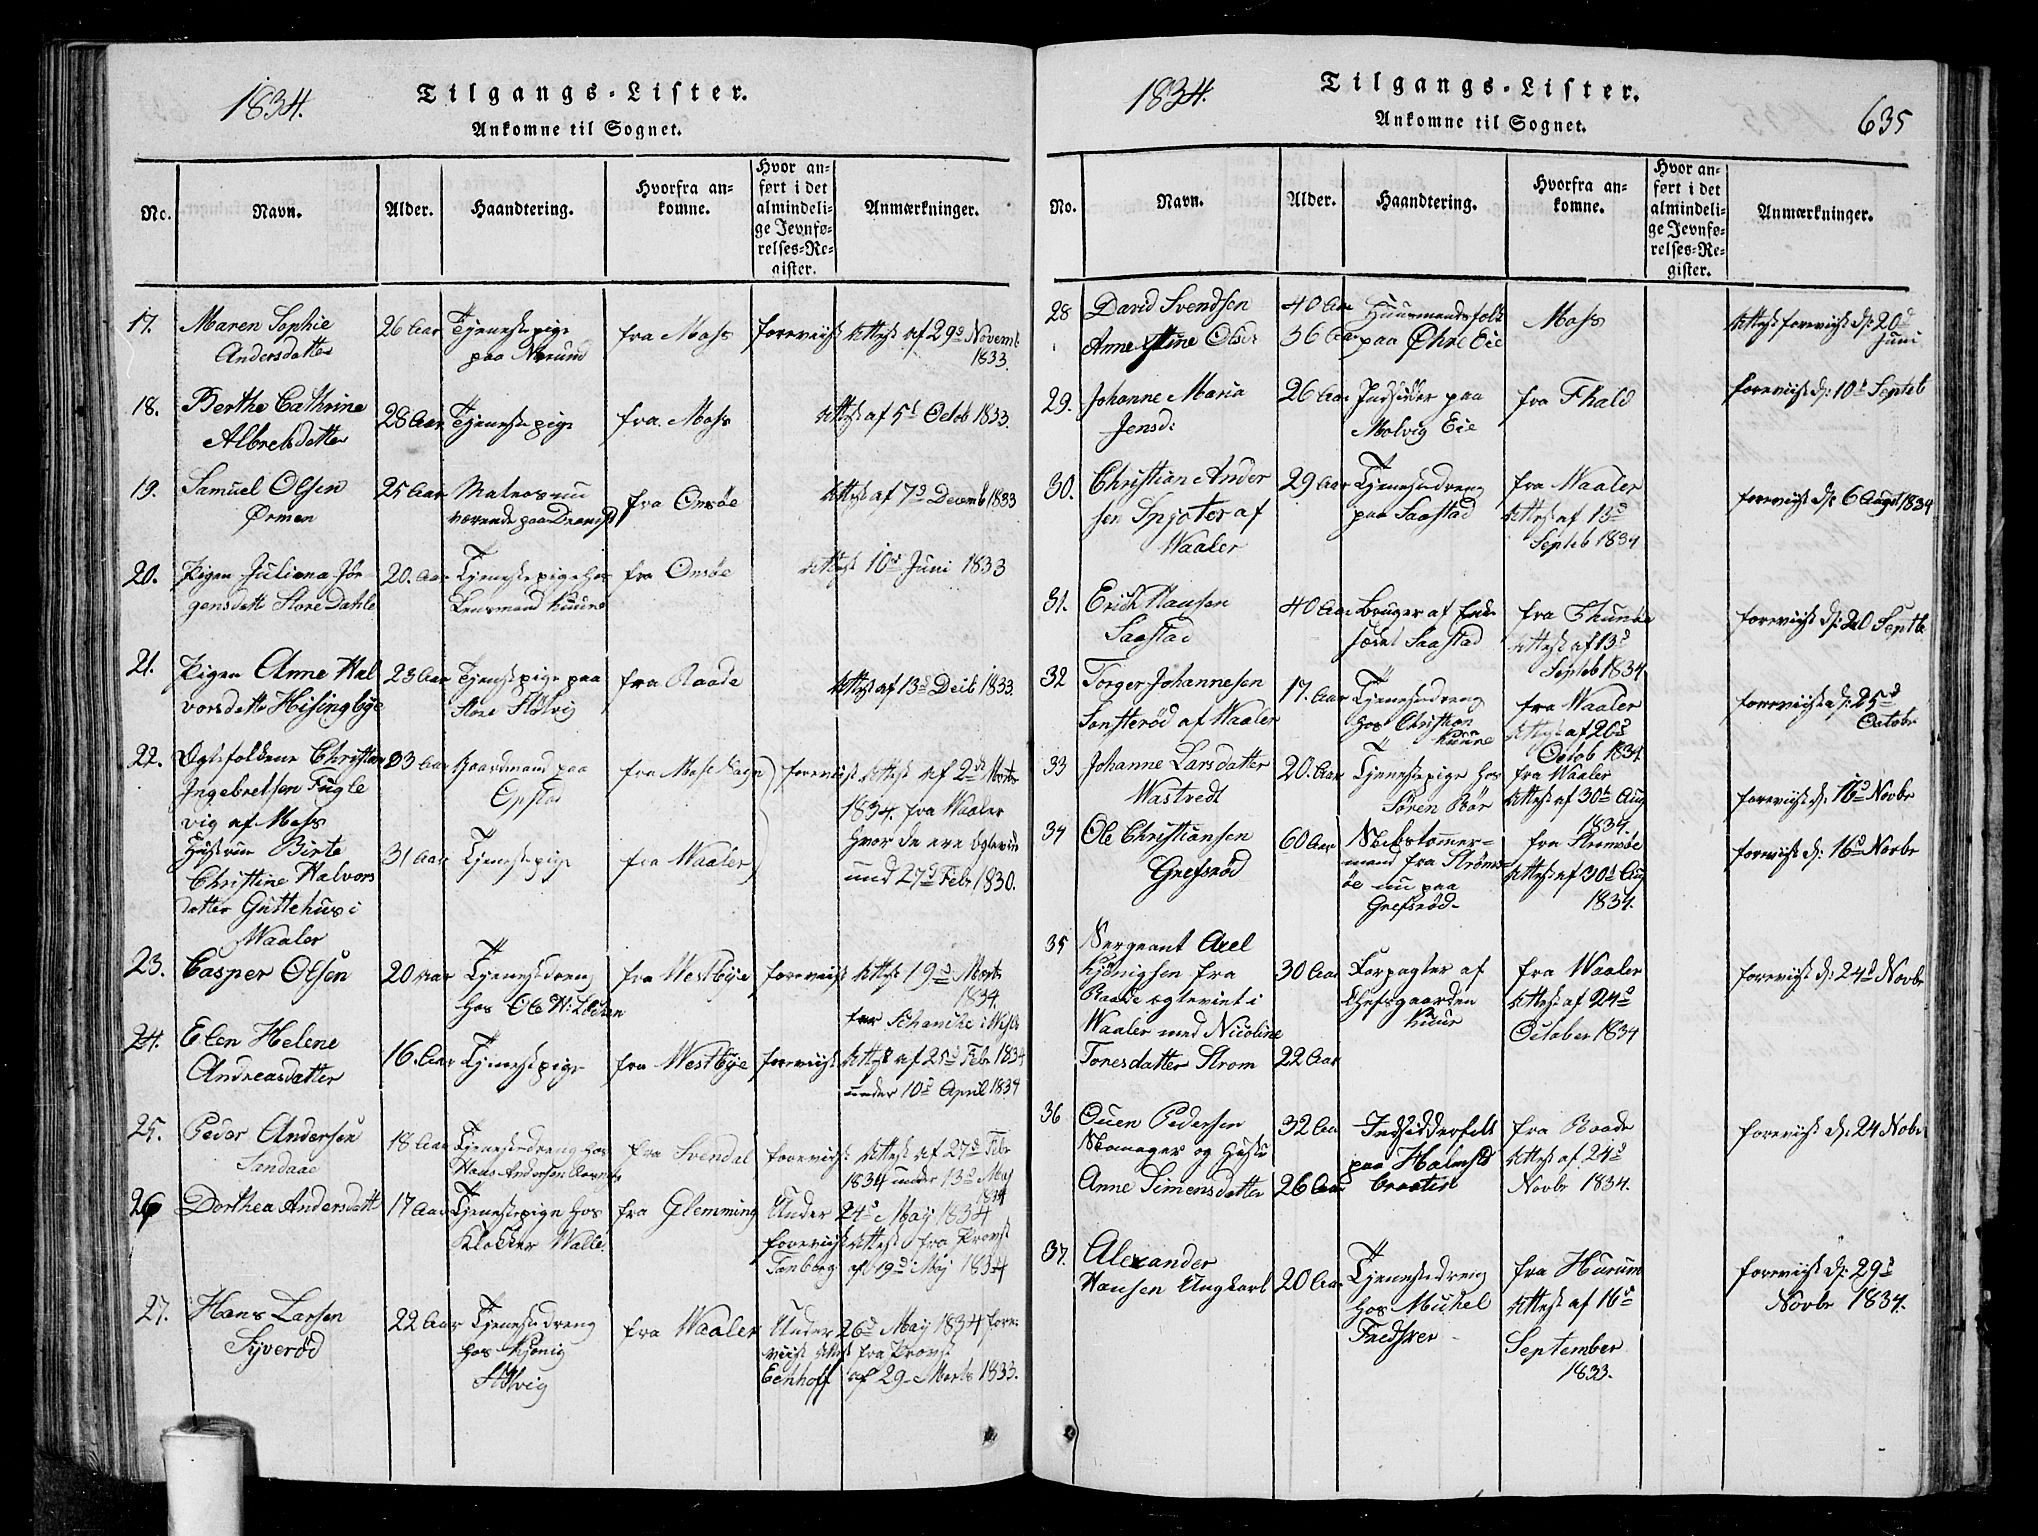 1834.
Tilgangs-Lister.
Ankomne til Sognet.
No.
Navn.
Alder.
Haandtering.
Hvorfra an-
komne.
Hvor an-
ført i det
almindeli-
ge Jevnfø-
relses-Re-
gister.
Anmærkninger.
17.
Maren Sophie
Andersdatter
26 Aar
Tjenestepige
paa
fra Moss
foreviist Attest af 29d Novemb
1833.
18.
Berthe Cathrine
Albretsdatter
28 Aar
Tjenestepige
fra Moss
Attest af 5t Octob 1833.
19.
Samuel Olsen
Ørmen
25 Aar
Matros nu
værende paa
fra Onsøe
Attest af 7d Decemb 1833
20.
Pigen Juliana Jør-
gensdatt Store Dahle
20. Aar
Tjenestepige hos
Lensmand Kuure
fra Onsøe
Attest 10d Juni 1833
21.
Pigen Anne Hal
vorsdatte Hisingbye
23 Aar
Tjenestpige paa
Store Støtvig
fra Raade
Attest af 13d Decb 1833.
22.
Ægtefolkene Christian
Ingebretsen Fugle
vig af Moss
Hustrue Birte
Christine Halvors
datter Guttehus i
Waaler
33 Aar
Gaardmand paa
Epstad
fra Mose Sogn
foreviist Attest af 2de Marts
1834. fra Waaler
hvor de ere Egtevie
und 27d Febr 1830.
31 Aar
Tjenestepige
fra Waaler
23.
Casper Olsen
20 Aar
Tjenestedreng
hos Ole N:
fra Westbye
foreviist Attest 19d Marts
1834.
24.
Elen Helene
Andreasdatter
16. Aar
Tjenestepige
fra Westbye
foreviist Attest af 25d Febr 1834
under 10d April 1834
25.
Peder Andersen
Sandaae
18 Aar
Tjenestedreng hos
Hans Andersen
fra Svendal
foreviist Attest af 27d Febr
1834 under 13d May
1834
26
Dorthea Andersdatt
17 Aar
Tjenestepige hos
Klokker Walle.
fra Glemming
Under 24d May 1834
foreviist Attest fra Provst
Tanberg af 19d May 1834
27.
Hans Larsen
Syverød
22 Aar
Tjenestedreng
hos Kjönig
Støtvig
fra Waaler
Under 26d May 1834 fore-
viist Attest fra Provst
Eenhoff af 29 Marts 1833.
1834.
Tilgangs-Lister.
Ankomne til Sognet.
635
No.
Navn.
Alder.
Haandtering.
Hvorfra an-
komne.
Hvor an-
ført i det
almindeli-
ge Jevnfø-
relses-Re-
gister.
Anmærkninger.
28
David Svendsen
Anne Stine Olsd:
40 Aar
36 Aar
Huusmandsfolk
paa Øhre Eie
Moss
Attest foreviist d: 20d
Juni
29.
Johanne Maria
Jensd:
26 Aar
Indsidder paa
Molvig Eie
fra Thald
foreviist d: 10d Septeb
30.
Christian Ander
sen af
Waaler
29 Aar
Tjenestedreng
paa Saastad
fra Waaler
Attest af 13d
Septeb 1834
foreviist d: 6 Augst 1834
31.
Erich Hansen
Saastad
40 Aar
Bruger af Enke
sædet Saastad
fra Thunøe
Attest af 13d
Septeb 1834
foreviist d: 20 Septb
32
Torger Johannesen
Sonsterød af Waaler
17. Aar
Tjenestedreng
hos Christian
Kuure
fra Waaler
Attest af 26d
Octob 1834
foreviist d: 25d
Octobr
33
Johanne Larsdatter
Wastvedt
20. Aar
Tjenestepige hos
Søren Bør
fra Waaler
Attest af 30t Aug
1834.
foreviist d: 16d Novbr
34
Ole Christiansen
Grefsrød
60 Aar
Skibstømmer-
mand fra Strøms-
øe nu paa
Grefsrød-
fra Strømsøe
Attest af 30d Aug
1834.
foreviist d: 16d Novbr
35
Sergeant Axel
Kjønigsen fra
Raade egteviet i
Waaler med Nicoline
Tonesdatter Strom
30 Aar
22 Aar
Forpagter af
Chefsgaarden
Kuur
fra Waaler
Attest af 24d
October 1834
foreviist d: 24d Novbr
36
Ouen Pedersen
Skomager og Hustr
Anne Simensdatter
32 Aar
26 Aar
Indsidderfolk
paa Halmstd
braaten
fra Raade
Attest af 24d
Novbr 1834.
foreviist d: 24 Nobr
37.
Alexander
Hansen Ungkarl
20 Aar
Tjenestedreng
hos Mickel
Fredsver
fra Hurum
Attest af 16d
September
1833.
foreviist d: 29d
Novbr 1834.